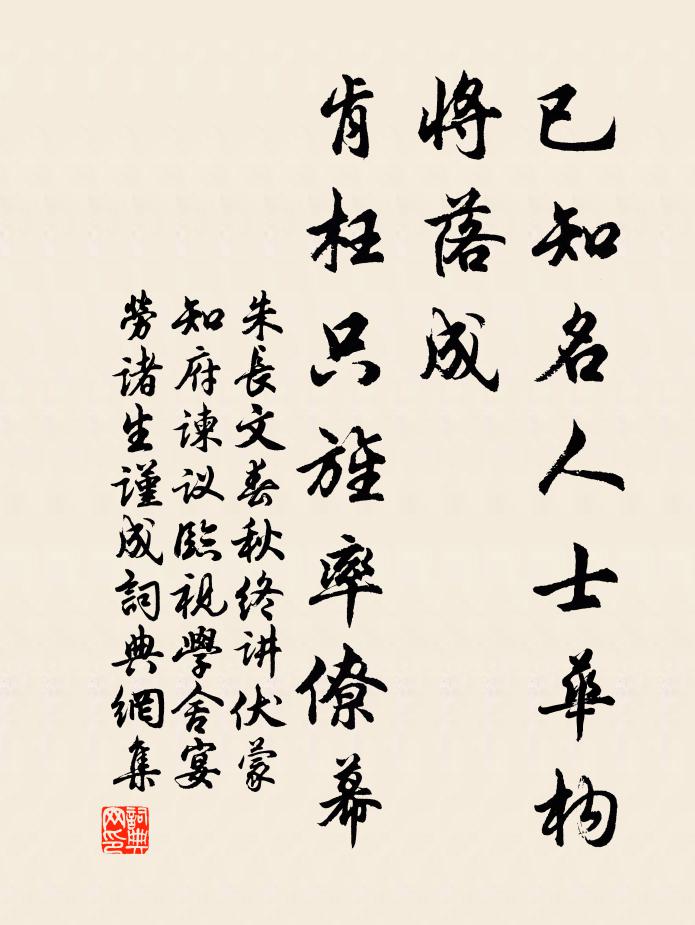 已知名人士華构
將落成
肯枉只旌率僚幕
朱長文春秋終讲伏蒙
知府諫议臨視學舍宴
勞诸生謹成詞典網集
詞典网印